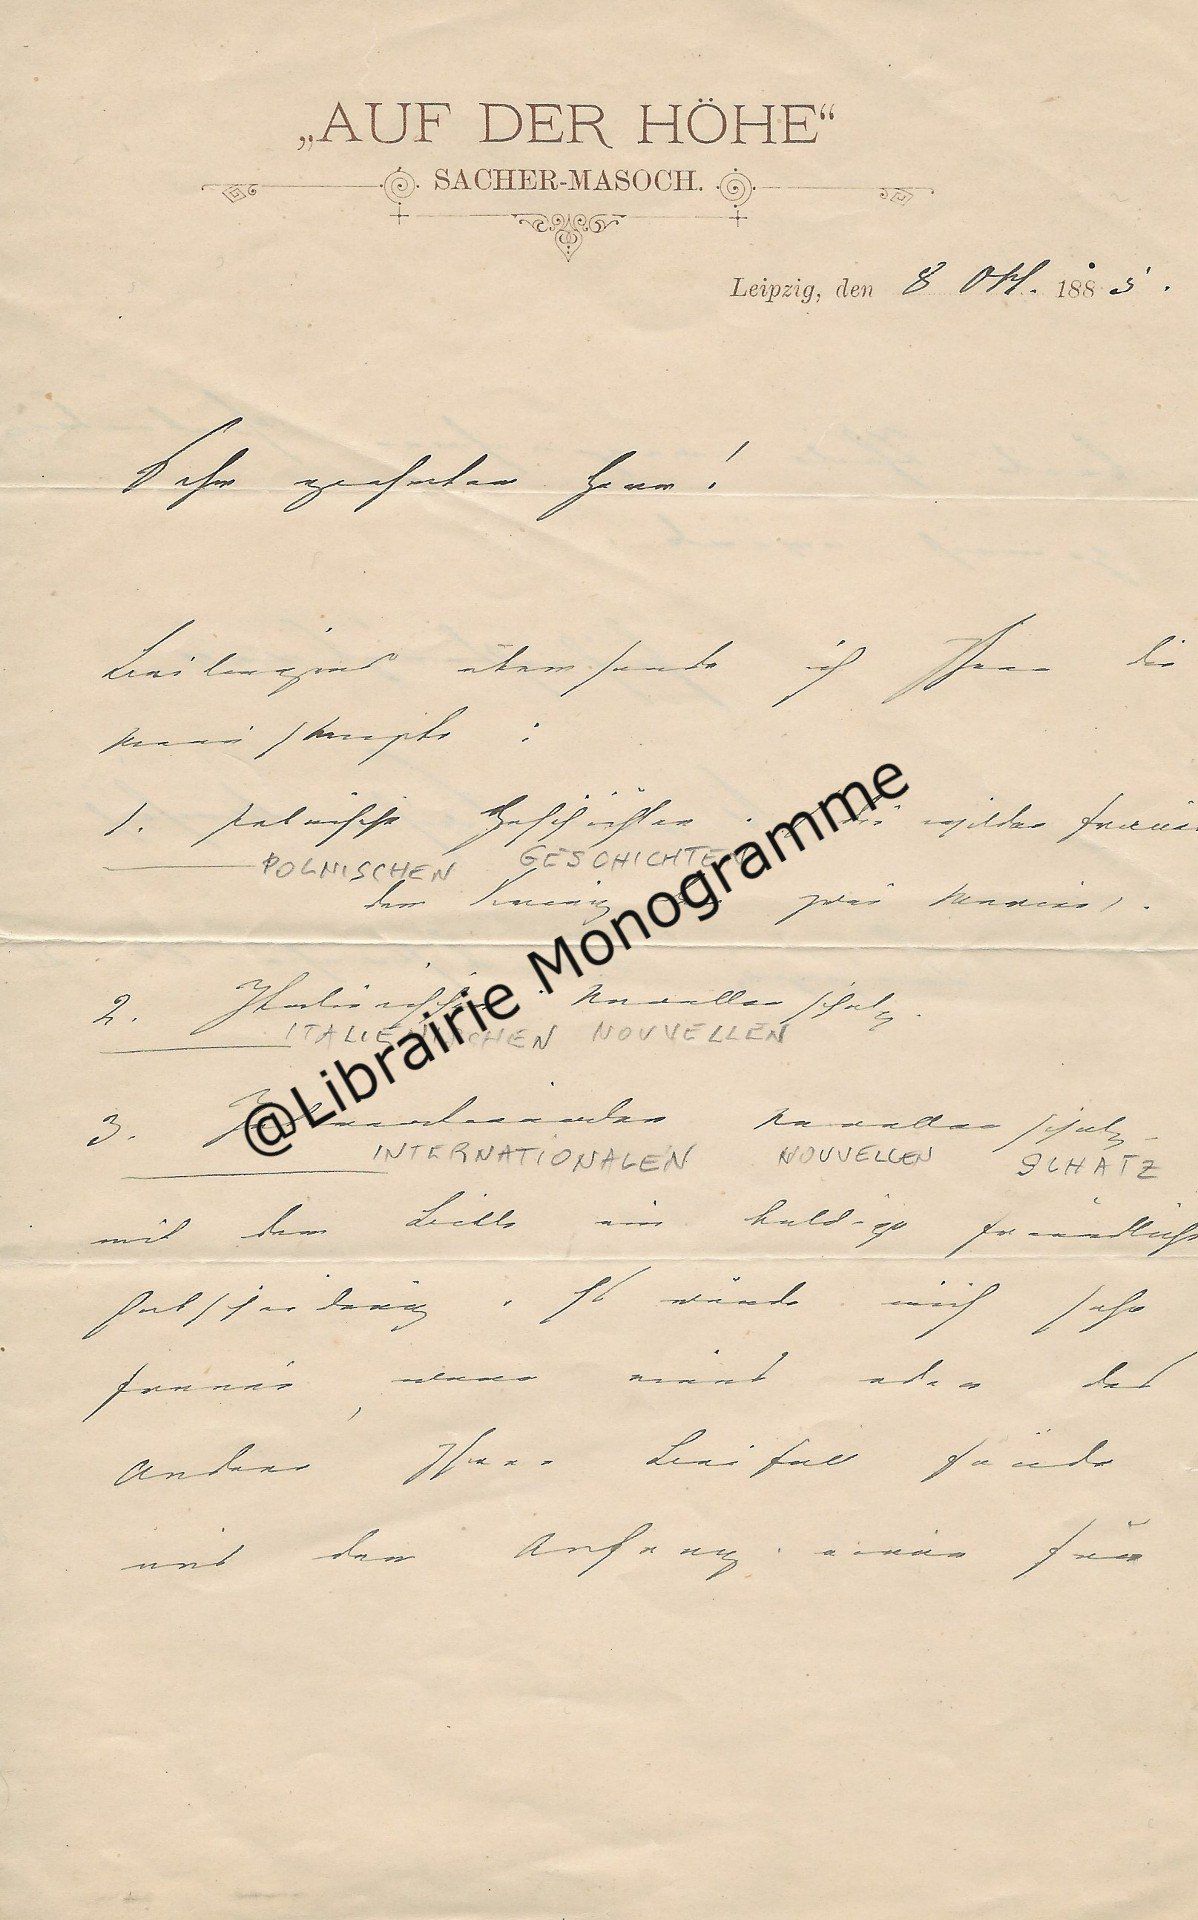 „AUF DER HÖHE“
SACHER-MASOCH.
Leipzig, den 8 Okt. 1885.
Sehr geehrter Herr!
Beiliegend übersende ich Ihnen die
Manuskripte:
1. Polnische Geschichten. wilden
POLNISCHEN GESCHICHTEN
der zwei
2. Italienischer Novellenschatz.
ITALIENISCHEN NOUVELLEN
3. Internationalen Novellenschatz
INTERNATIONALEN NOUVELLEN SCHATZ
mit der Bitte um baldige freundliche
Entscheidung. Es würde mich sehr
freuen, wenn eines oder das
Andere Ihren Beifall fände
und der Anfang einer für
@Librairie Monogramme